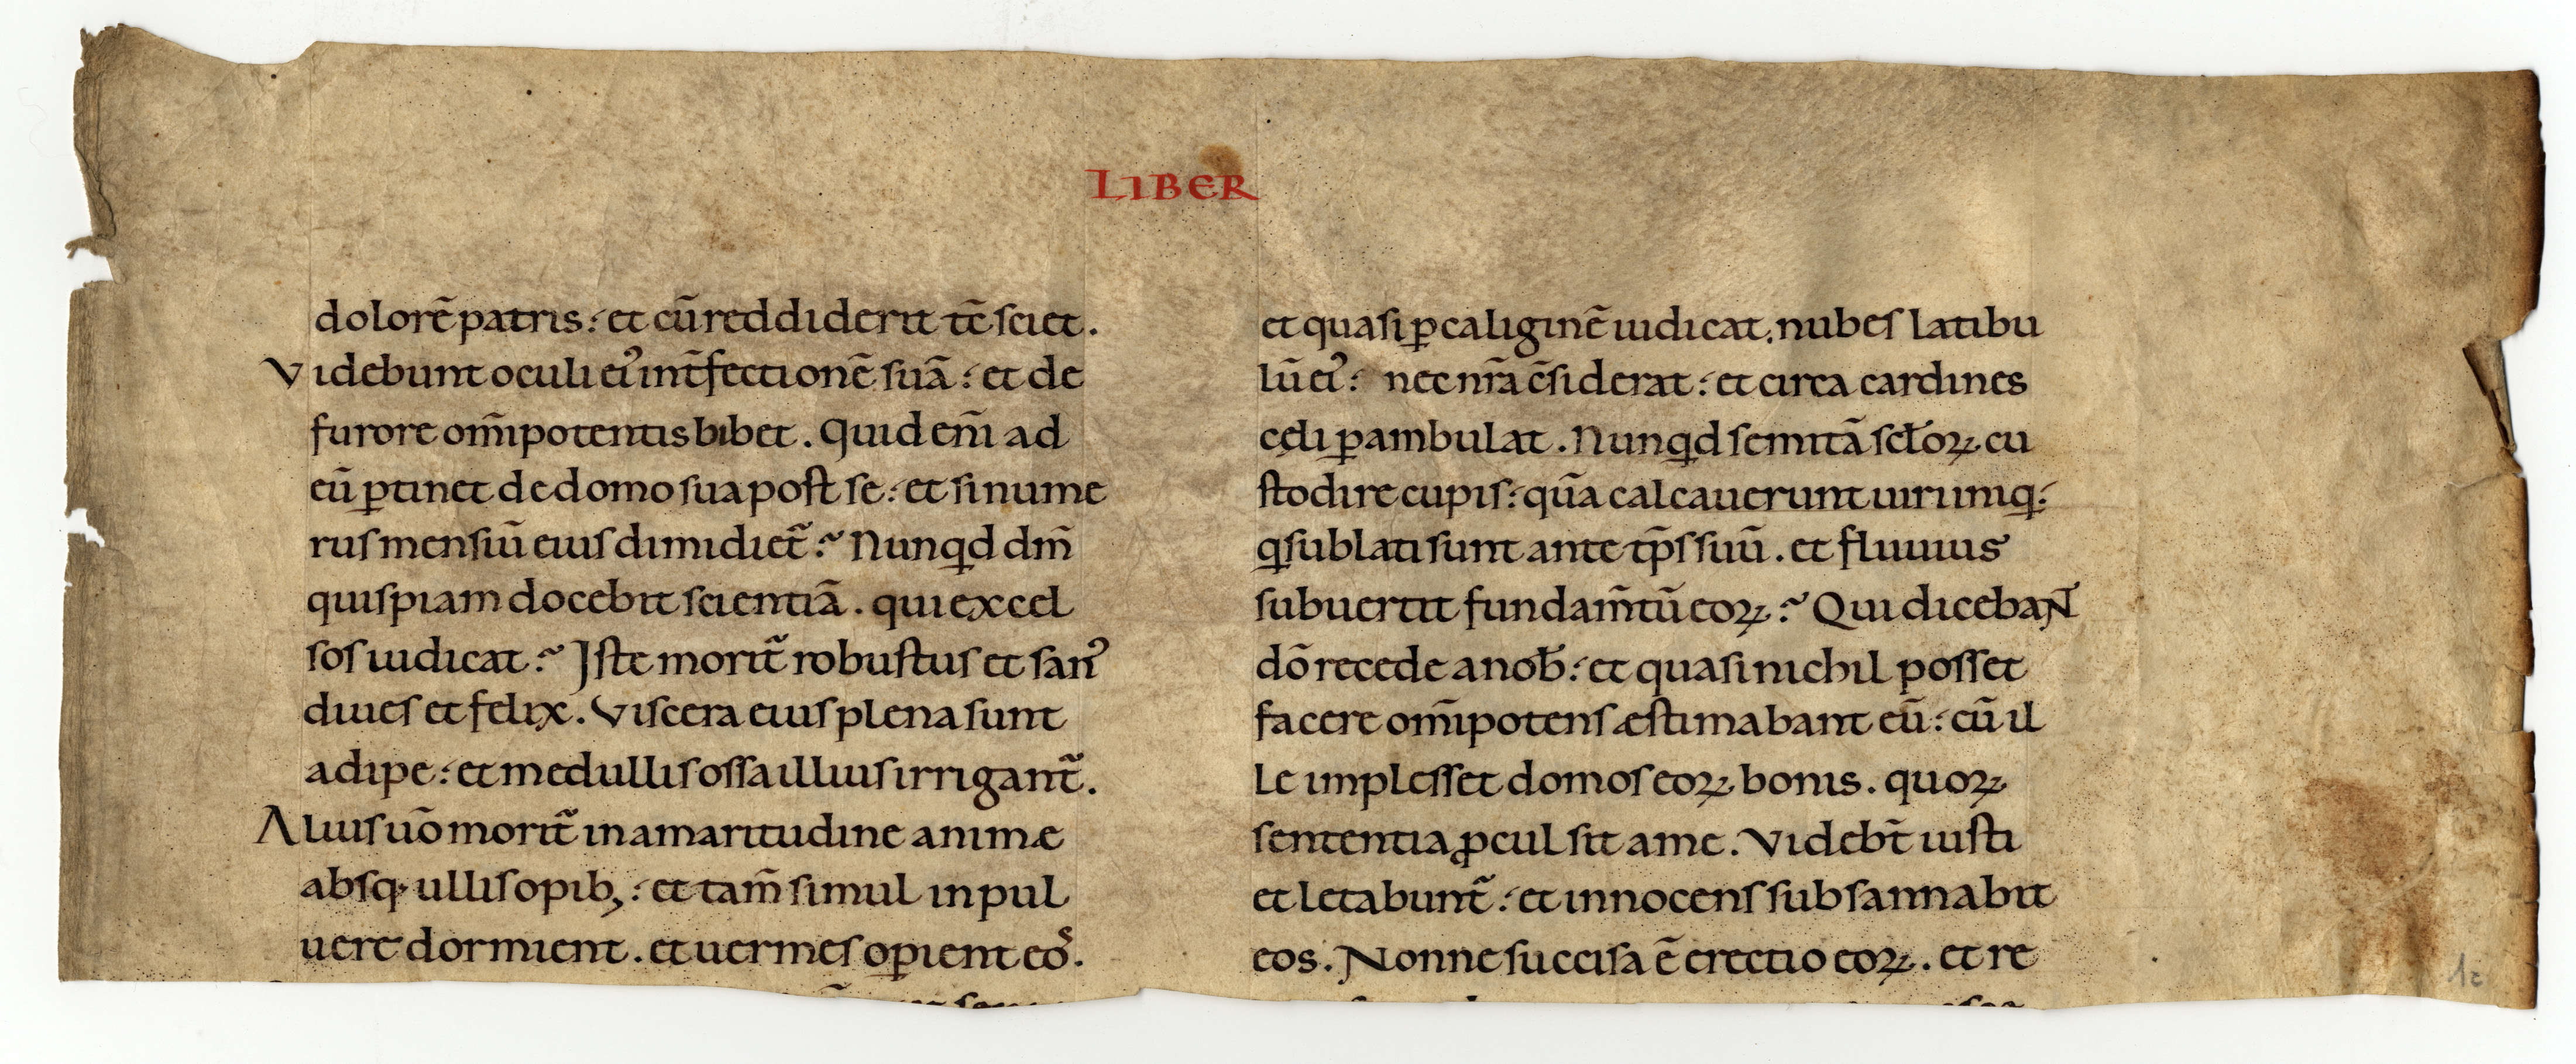 LIBER
dolorē patris: et cū reddiderit tc̄ sciet.
Videbunt oculi eiꝰ int̄fectionē suā: et de
furore om̄ipotentis bibet. Quid eni̅ ad
eū ꝑtinet de domo sua post se: et si nume
rus mensiū eius dimidiet᷑:~ Nunqͥd dm̄
quispiam docebit scientiā. qui excel
sos iudicat:~ Iste morit᷑ robustus et sanꝰ
diues et felix. Viscera eius plena sunt
adipe: et medullis ossa illius irrigant᷑.
Alius uō morit᷑ in amaritudine animæ
absq; ullis opib;: et tam̄ simul in pul
uere dormient. et uermes oꝑient eoˢ.
et quasi ꝑ caliginē iudicat. nubes latibu
lū eiꝰ: nec nr̄a c̄siderat: et circa cardines
cęli ꝑambulat. Nunqͥd semitā sc̄loꝝ cu
stodire cupis: qūa calcauerunt uiri iniq:
q sublati sunt ante tp̄s suū. et fluuius
subuertit fundam̄tū eoꝝ:~ Qui dicebant
dō recede a nob̄: et quasi nichil posset
facere om̄ipotens æstimabant eū: cū il
le implesset domos eoꝝ bonis. quoꝝ
sententia ꝓcul sit a me. Videbt̄ iusti
et letabunt᷑: et innocens subsannabit
eos. Nonne succisa ē erectio eoꝝ. et re
1c